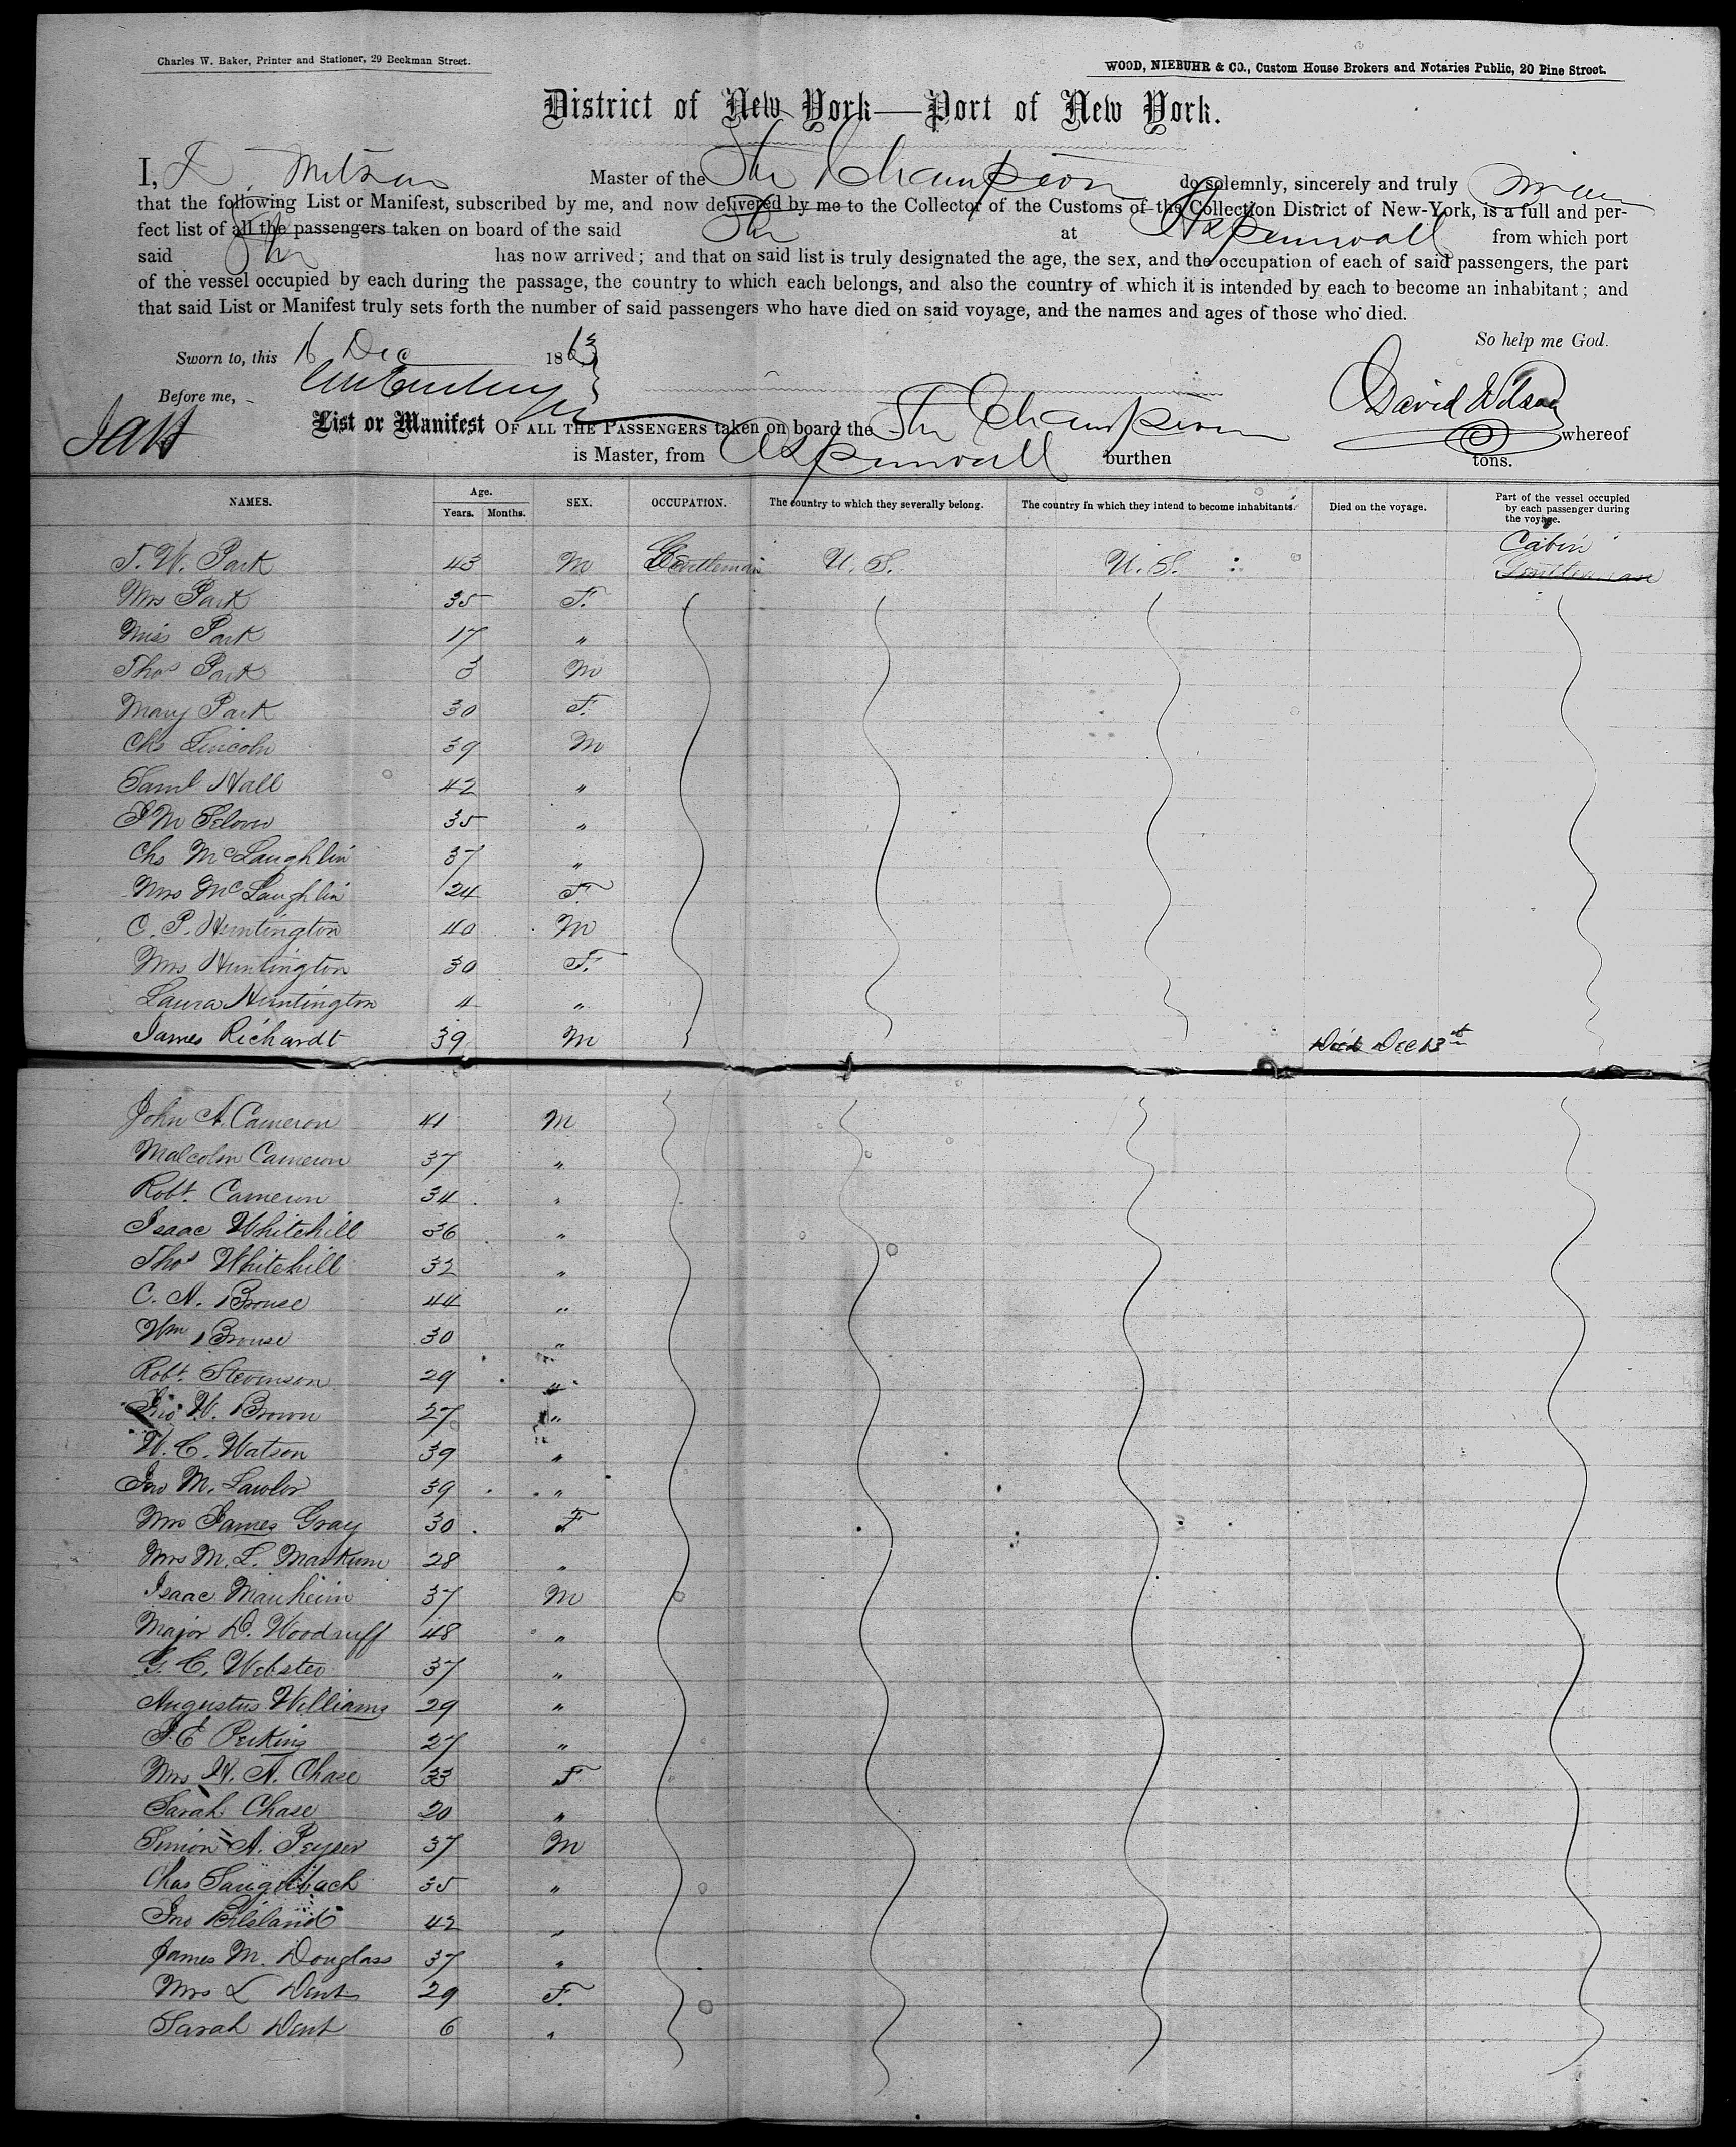 Charles W. Baker, Printer and Stationer, 29 Beekman Street.
WOOD, NIEBUHR & CO., Custom House Brokers and Notaries Public, 20 Pine Street.
District of New York—Port of New York.
I, D. Wilson Master of the Str Champion do solemnly, sincerely and truly swear
that the following List or Manifest, subscribed by me, and now delivered by me to the Collector of the Customs of the Collection District of New-York, is a full and per-
fect list of all the passengers taken on board of the said Str at Aspinwall from which port
said Str has now arrived; and that on said list is truly designated the age, the sex, and the occupation of each of said passengers, the part
of the vessel occupied by each during the passage, the country to which each belongs, and also the country of which it is intended by each to become an inhabitant; and
that said List or Manifest truly sets forth the number of said passengers who have died on said voyage, and the names and ages of those who died.
So help me God.
Sworn to, this 16 Dec 1863
David Wilson
Before me,
List or Manifest OF ALL THE PASSENGERS taken on board the Str Champion whereof
is Master, from Aspinwall burthen tons.
NAMES. Age. Years. Months. SEX. OCCUPATION. The country to which they severally belong. The country in which they intend to become inhabitants. Died on the voyage. Part of the vessel occupied by each passenger during the voyage.
Cabin
T. W. Park 43 M Gentleman U. S. U. S. Gentleman
Mrs Park 35 F.
Miss Park 17 "
Thos Park 3 M
Mary Park 30 F.
Chs Lincoln 39 M
Saml Hall 42 "
J M Selover 35 "
Chs McLaughlin 37 "
Mrs McLaughlin 24 F.
C. P. Huntington 40 M
Mrs Huntington 30 F.
Laura Huntington 4 "
James Richardt 39 M Died Dec 13th
John A. Cameron 41 M
Malcolm Cameron 37 "
Robt. Cameron 34 "
Isaac Whitehill 36 "
Thos Whitehill 32 "
C. A. Brouse 44 "
Wm Brouse 30 "
Robt. Stevenson 29 "
Jno W. Brown 27 "
W. C. Watson 39 "
Jno M. Lawlor 39 "
Mrs James Gray 30 F
Mrs M. L. Markum 28 "
Isaac Manheim 37 M
Major D. Woodruff 48 "
G. C. Webster 37 "
Augustus Williams 29 "
J. E Perkins 27 "
Mrs W. A. Chase 33 F
Sarah Chase 20 "
Simon A. Peyser 37 M
Chas 35 "
Jno 42 "
James M. Douglass 37 "
Mrs L Dent 29 F.
Sarah Dent 6 "